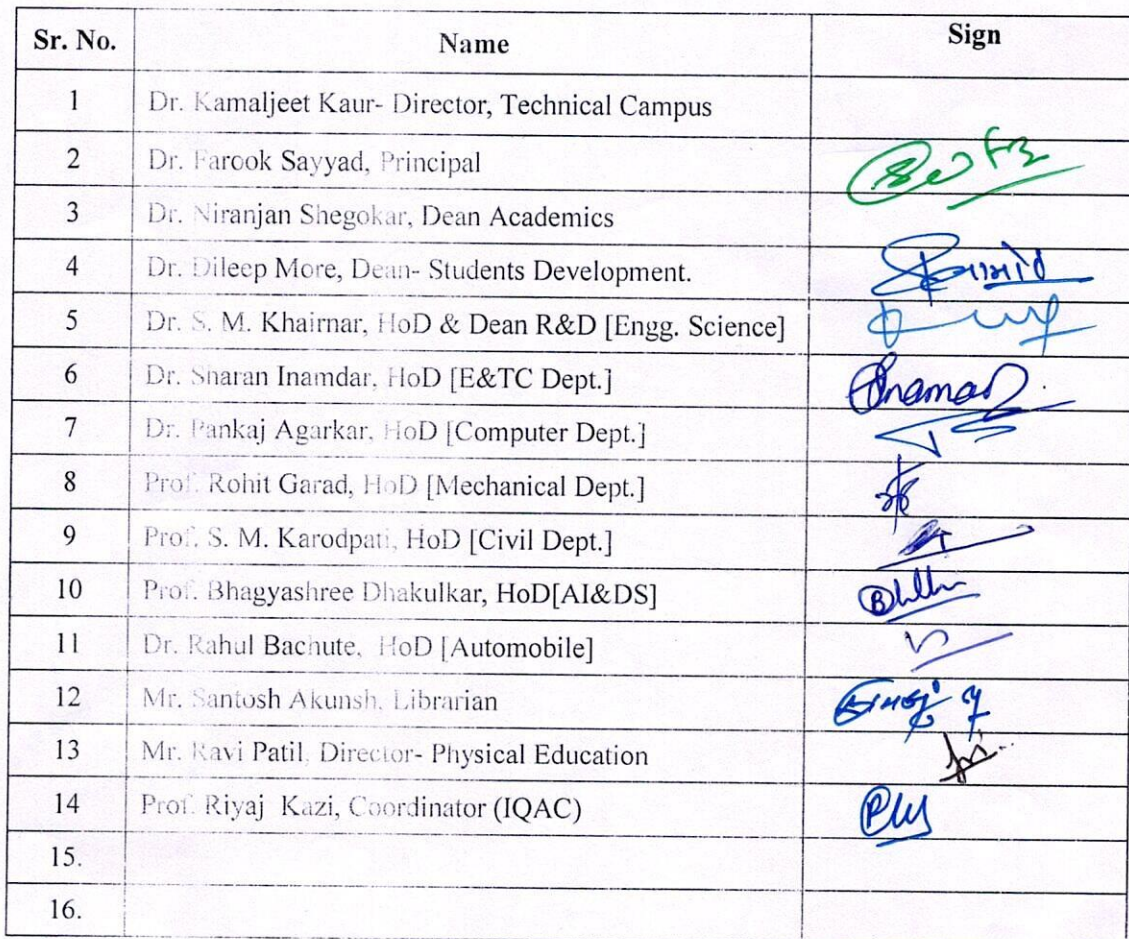 Sr. No. Name Sign
1 Dr. Kamaljeet Kaur- Director, Technical Campus
2 Dr. Farook Sayyad, Principal
3 Dr. Niranjan Shegokar, Dean Academics
4 Dr. Dileep More, Dean- Students Development.
5 Dr. S. M. Khairnar, HoD & Dean R&D [Engg. Science]
6 Dr. Sharan Inamdar, HoD [E&TC Dept.]
7 Dr. Pankaj Agarkar, HoD [Computer Dept.]
8 Prof. Rohit Garad, HoD [Mechanical Dept.]
9 Prof. S. M. Karodpati, HoD [Civil Dept.]
10 Prof. Bhagyashree Dhakulkar, HoD[AI&DS]
11 Dr. Rahul Bachute, HoD [Automobile]
12 Mr. Santosh Akunsh, Librarian
13 Mr. Ravi Patil, Director- Physical Education
14 Prof. Riyaj Kazi, Coordinator (IQAC)
15.
16.